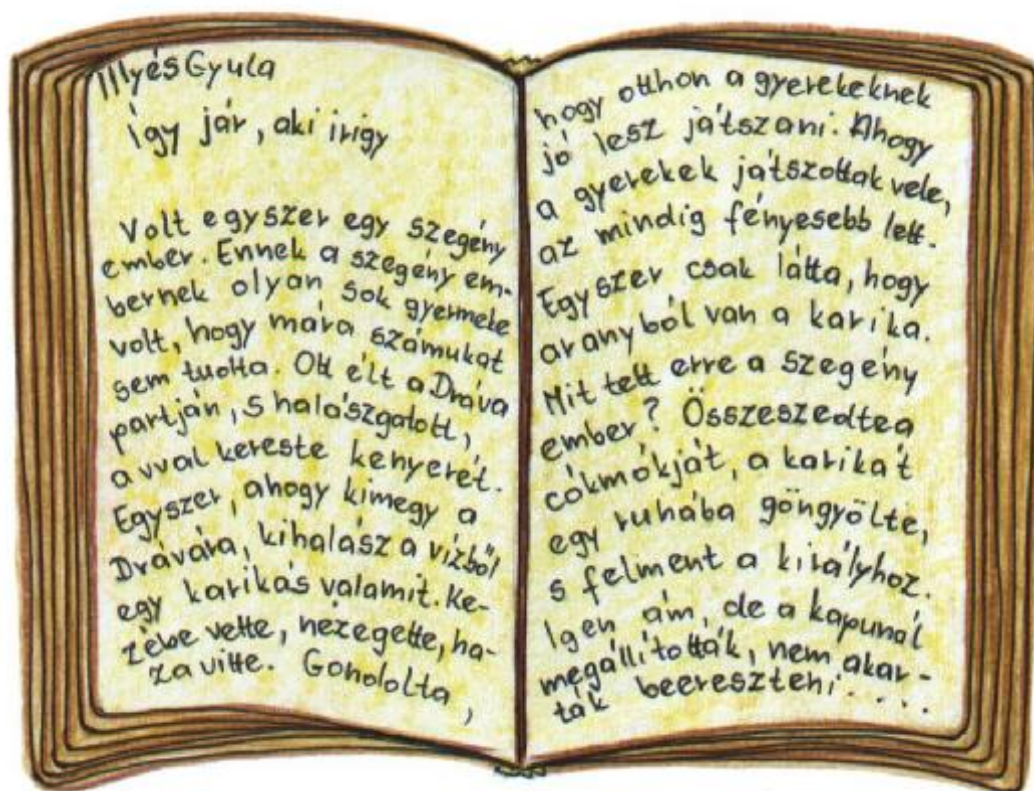 Illyés Gyula
Így jár, aki irigy
Volt egyszer egy szegény
ember. Ennek a szegény em-
bernek olyan sok gyermeke
volt, hogy mára számukat
sem tudta. Ott élt a Dráva
partján, s halászgatott,
avval kereste kenyerét.
Egyszer, ahogy kimegy a
Drávára, kihalász a vízből
egy karikás valamit. Ke-
zébe vette, nézegette, ha-
za vitte. Gondolta,
hogy otthon a gyerekeknek
jó lesz játszani. Ahogy
a gyerekek játszottak vele,
az mindig fényesebb lett.
Egyszer csak látta, hogy
aranyból van a karika.
Mit tett erre a szegény
ember? Összeszedte a
cókmókját, a karikát
egy ruhába göngyölte,
s felment a királyhoz.
Igen ám, de a kapunál
megállították, nem akar-
ták beereszteni....